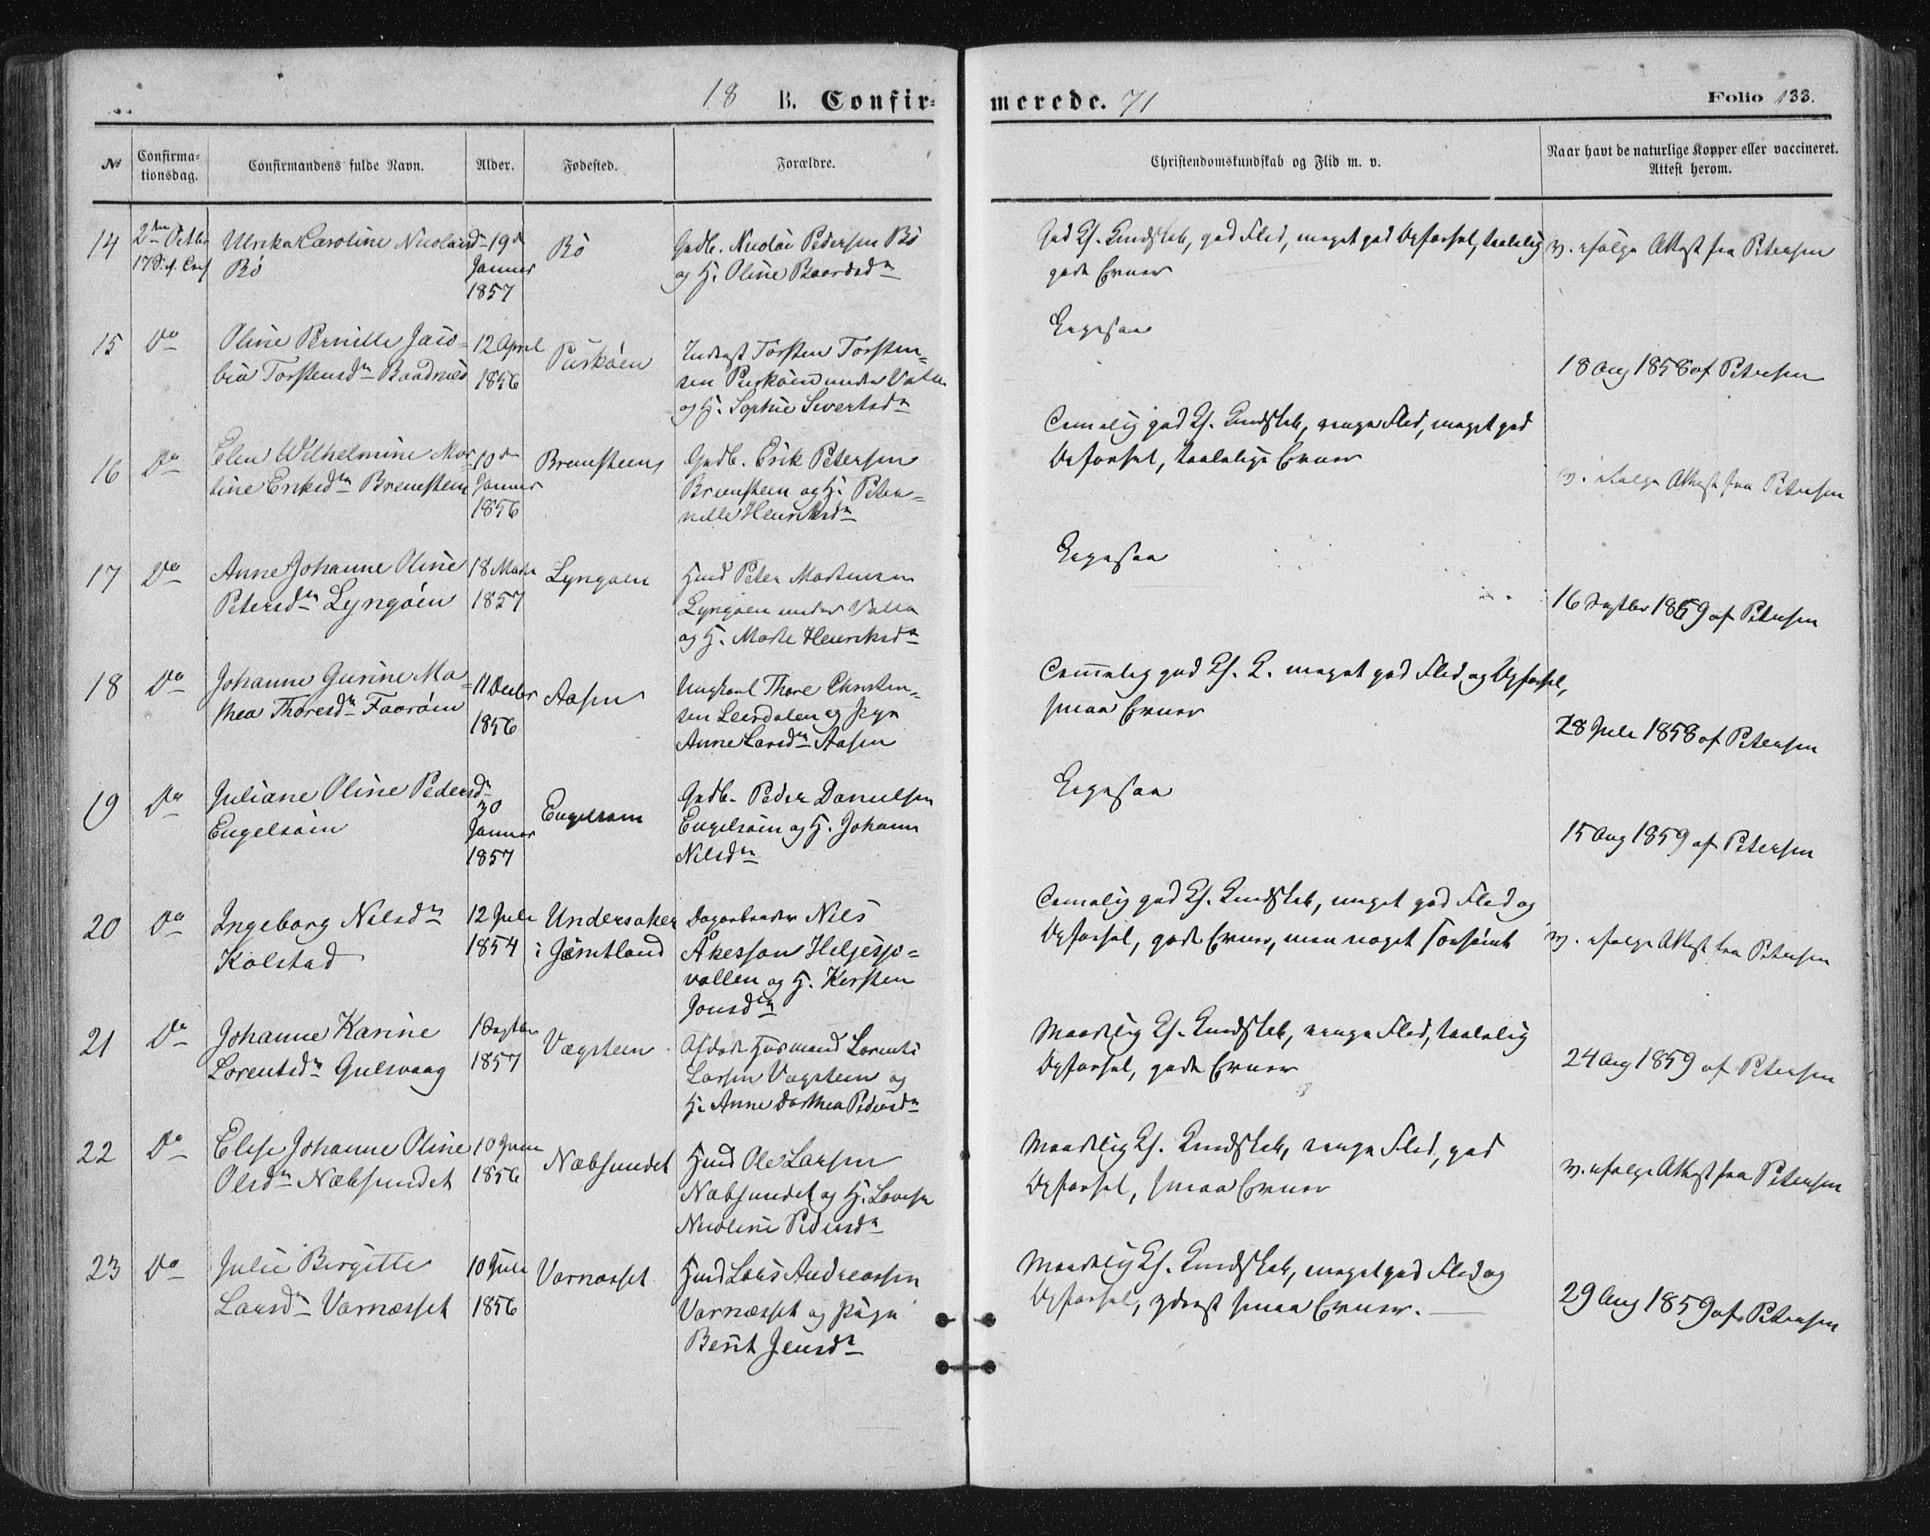 18 B. Confirmerede. 71
Folio 133.
No
Confirmationsdag.
Confirmandens fulde Navn.
Alder.
Fødested.
Forældre.
Christendomskundskab og Flid m. v.
Naar havt de naturlige Kopper eller vaccineret.
Attest herom.
14
2den Octbr
Ulrika Caroline Nicolaisdn
Bö
19de
Januar
1857
Bö
Gadb. Nicolai Pedersen Bö
og H. Oline Baardsdn
God Ch. Kundskab, god Flid, meget god Opførsel, taalelig
gode Evner
v. ifølge Attest fra Petersen
15
Do
Oline Pernille Jaco-
bia Torstensdn Baadnes
12 April
1856
Puskøen
Inderst Torsten Torsten-
sen Puskøen under Valla
og H. Sophie Sivertsdn
Ligesaa
18 Aug 1858 af Petersen
16
Do
Elen Wilhelmine Mar-
tine Eriksdn Bremsteen
10de
Januar
1856
Bremsteen
Gadb. Erik Petersen
Bremsteen og H. Peter-
nelle Henriksdn
Temelig god Ch. Kundskab, ringe Flid, meget god
Opførsel, taalelige Evner
v. ifølge Attest fra Petersen
17
Do
Anne Johanne Oline
Petersdn Lyngøen
18 Marts
1857
Lyngøen
Hmd Peter Mortensen
Lyngøen under Valla
og H. Marte Henriksdn
Ligesaa
16 Septbr 1859 af Petersen
18
Do
Johanne Gurine Ma-
thea Thoresdn Faarøen
11 Decbr
1856
Aasen
Ungkarl Thore Christen-
sen Leirdalen og Pige
Anne Larsdn Aasen
Temmelig god Ch. K. meget god Flid og Opførsel,
smaa Evner
28 Juli 1858 af Petersen
19
Do
Juliane Oline Pedersdn
Engelsöin
30
Januar
1857
Engelsøen
Gadb. Peder Danielsen
Engelsöen og H. Johanna
Nilsdn
Ligesaa
15 Aug 1859 af Petersen
20
Do
Ingeborg Nilsdn
Kolstad
12 Juli
1854
Undersaker
i Jæmtland
Dagarbeider Nils
Åkesson Helgesjö-
vallen og H. Kersten
Jonsdn
Temelig god Ch. Kundskab, meget god Flid og
Opførsel, gode Evner, men noget forsømt
v. ifølge Attest fra Petersen
21
Do
Johanne Karine
Lorentsdn Gulsvaag
1 Septbr
1857
Vægsteen
Afdøde Husmand Lorents
Larsen Vægsteen og
H. Anne Dorthea Pedersdn
Maadelig Ch. Kundskab, ringe Flid, taalelig
Opførsel, gode Evner
24 Aug 1859 af Petersen
22
Do
Elise Johanne Oline
Olsdn Næbsundet
10 Juni
1856
Næbsundet
Hmd Ole Larsen
Næbsundet og H. Lovise
Nicoline Pedersdn
Maadelig Ch. Kundskab, ringe Flid, god
Opførsel, smaa Evner
v. ifølge Attest fra Petersen
23
Do
Julie Birgitte
Larsdn Varnæsset
10 Juli
1856
Varnæsset
Hmd Lars Andreassen
Varnæsset og Pige
Berit Jensdn
Maadelig Ch. Kundskab, meget god Flid og
Opførsel, yderst smaa Evner.
29 Aug 1859 af Petersen